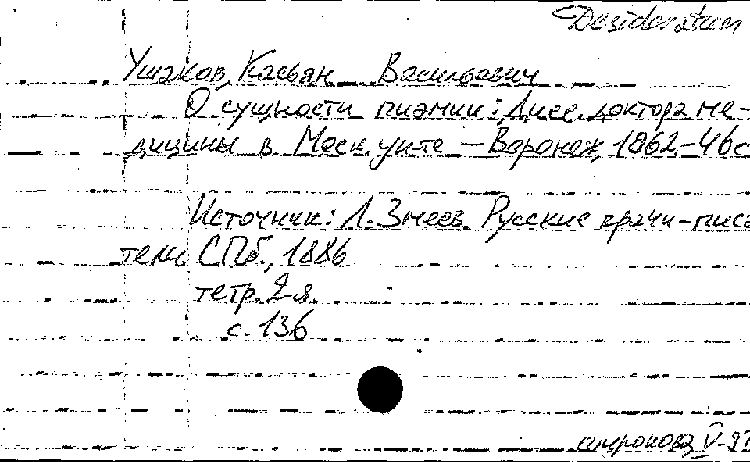 Desideratum
Ушаков, Касьян Васильевич
О сущности пиэмии: Дисс. доктора ме-
дицины в Моск. ун-те – Воронеж, 1862–46с
Источник: Л. Змеев. Русские врачи-писа
тели СПб., 1886
тетр. 2-я.
с. 136
V-97